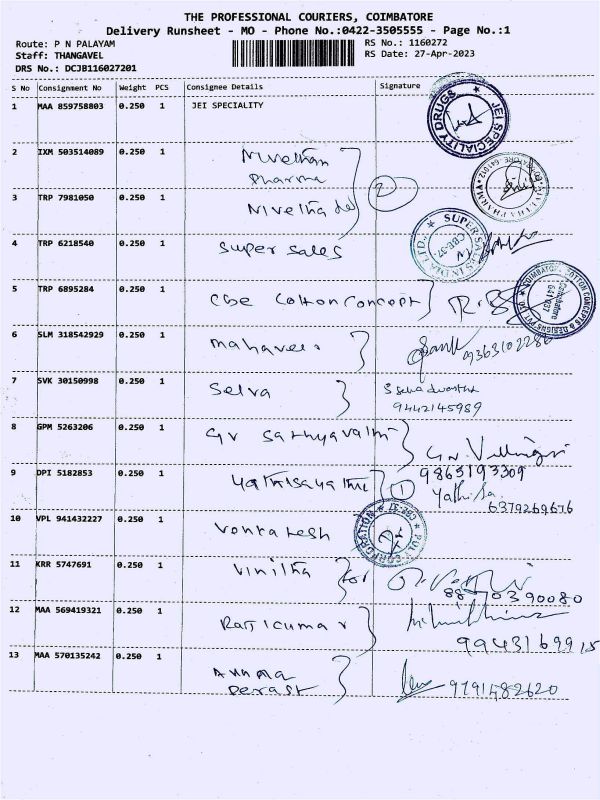 THE PROFESSIONAL COURIERS, COIMBATORE
Delivery Runsheet - MO - Phone No.:0422-3505555 - Page No.:1
Route: P N PALAYAM
RS No.: 1160272
Staff: THANGAVEL
RS Date: 27-Apr-2023
DRS No.: DCJB116027201
S No Consignment No Weight PCS Consignee Details Signature
1 MAA 859758803 0.250 1 JEI SPECIALITY
JEI SPECIALITY DRUGS
2 IXM 503514089 0.250 1 Nivetham
Pharma
2
3 TRP 7981050 0.250 1 Nivetha
4 TRP 6218540 0.250 1 Super Sales
SUPER SALES INDIA LTD.
CBE-37.
5 TRP 6895284 0.250 1 Cbe Cotton Concept
COIMBATORE COTTON CONCEPTS & DESIGNS PVT LTD
Coimbatore
641 037
6 SLM 318542929 0.250 1 Mahaveer
7 SVK 30150998 0.250 1 Selva
9442145989
8 GPM 5263206 0.250 1 GV Sathyavathi
9865193309
9 DPI 5182853 0.250 1
1
6379269676
10 VPL 941432227 0.250 1 Venkatesh
CORPORATION
CBE-37
11 KRR 5747691 0.250 1 Vinitha for
8870390080
12 MAA 569419321 0.250 1 Rajkumar
9943169915
13 MAA 570135242 0.250 1 Amma
9791482620